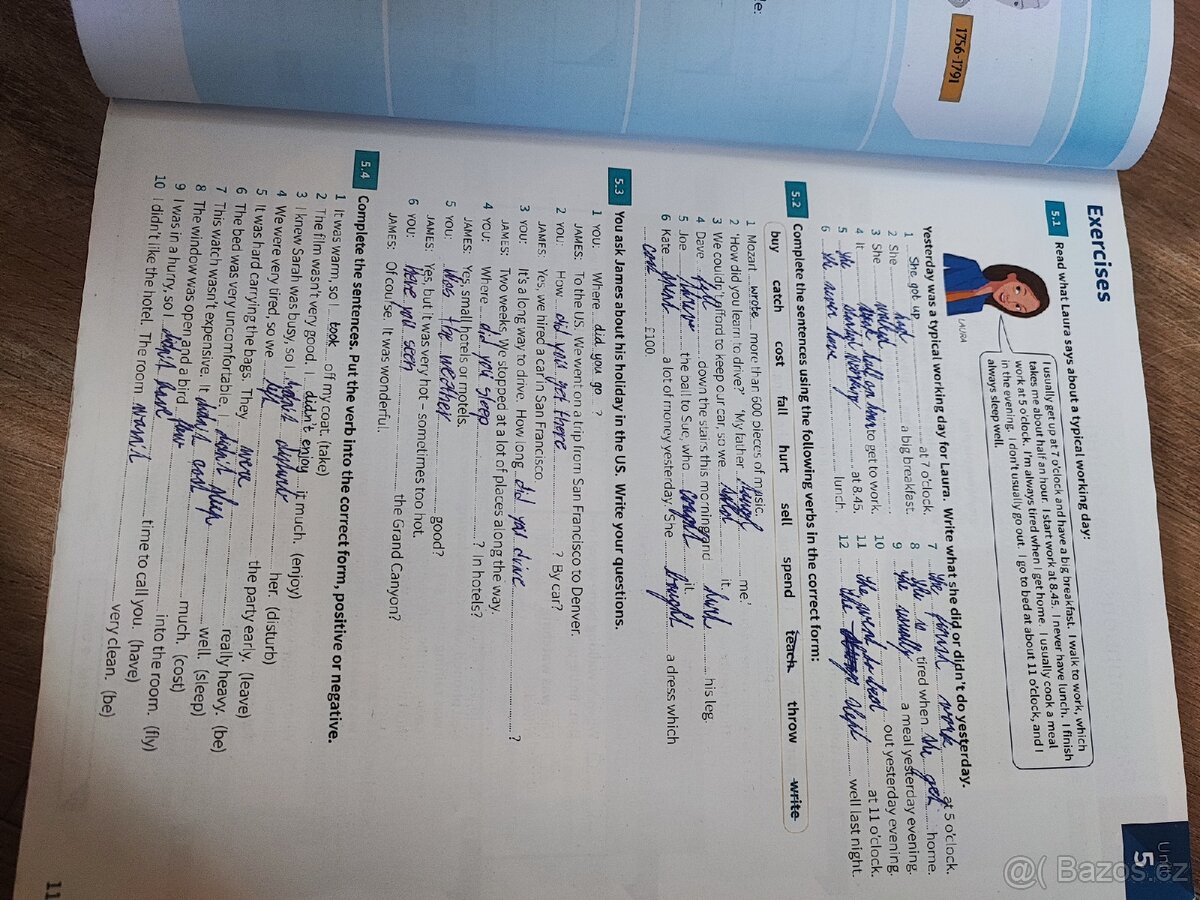 1756-1791
Unit
5
Exercises
5.1 Read what Laura says about a typical working day:
LAURA
I usually get up at 7 o'clock and have a big breakfast. I walk to work, which
takes me about half an hour. I start work at 8.45. I never have lunch. I finish
work at 5 o'clock. I'm always tired when I get home. I usually cook a meal
in the evening. I don't usually go out. I go to bed at about 11 o'clock, and I
always sleep well.
Yesterday was a typical working day for Laura. Write what she did or didn't do yesterday.
1 She got up at 7 o'clock.
2 She had a big breakfast.
3 She walked
4 It to get to work.
5 she started working at 8.45.
6 she never have lunch.
7 she finish work at 5 o'clock.
8 she tired when she get home.
9 she usually a meal yesterday evening.
10 out yesterday evening.
11 she went to bed at 11 o'clock.
12 she slept well last night.
5.2 Complete the sentences using the following verbs in the correct form:
buy catch cost fall hurt sell spend teach throw write
1 Mozart wrote more than 600 pieces of music.
2 'How did you learn to drive?' 'My father me.'
3 We couldn't afford to keep our car, so we sold it.
4 Dave fell down the stairs this morning and hurt his leg.
5 Joe the ball to Sue, who it.
6 Kate a lot of money yesterday. She bought a dress which
£100.
5.3 You ask James about his holiday in the US. Write your questions.
1 YOU: Where did you go ?
JAMES: To the US. We went on a trip from San Francisco to Denver.
2 YOU: How did you get there ? By car?
JAMES: Yes, we hired a car in San Francisco.
3 YOU: It's a long way to drive. How long did you drive ?
JAMES: Two weeks. We stopped at a lot of places along the way.
4 YOU: Where did you sleep ? In hotels?
JAMES: Yes, small hotels or motels.
5 YOU: the weather good?
JAMES: Yes, but it was very hot – sometimes too hot.
6 YOU: have you seen the Grand Canyon?
JAMES: Of course. It was wonderful.
5.4 Complete the sentences. Put the verb into the correct form, positive or negative.
1 It was warm, so I took off my coat. (take)
2 The film wasn't very good. I didn't enjoy it much. (enjoy)
3 I knew Sarah was busy, so I didn't disturb her. (disturb)
4 We were very tired, so we left the party early. (leave)
5 It was hard carrying the bags. They were really heavy. (be)
6 The bed was very uncomfortable. I didn't sleep well. (sleep)
7 This watch wasn't expensive. It didn't cost much. (cost)
8 The window was open and a bird flew into the room. (fly)
9 I was in a hurry, so I didn't have time to call you. (have)
10 I didn't like the hotel. The room wasn't very clean. (be)
11
@( Bazos.cz